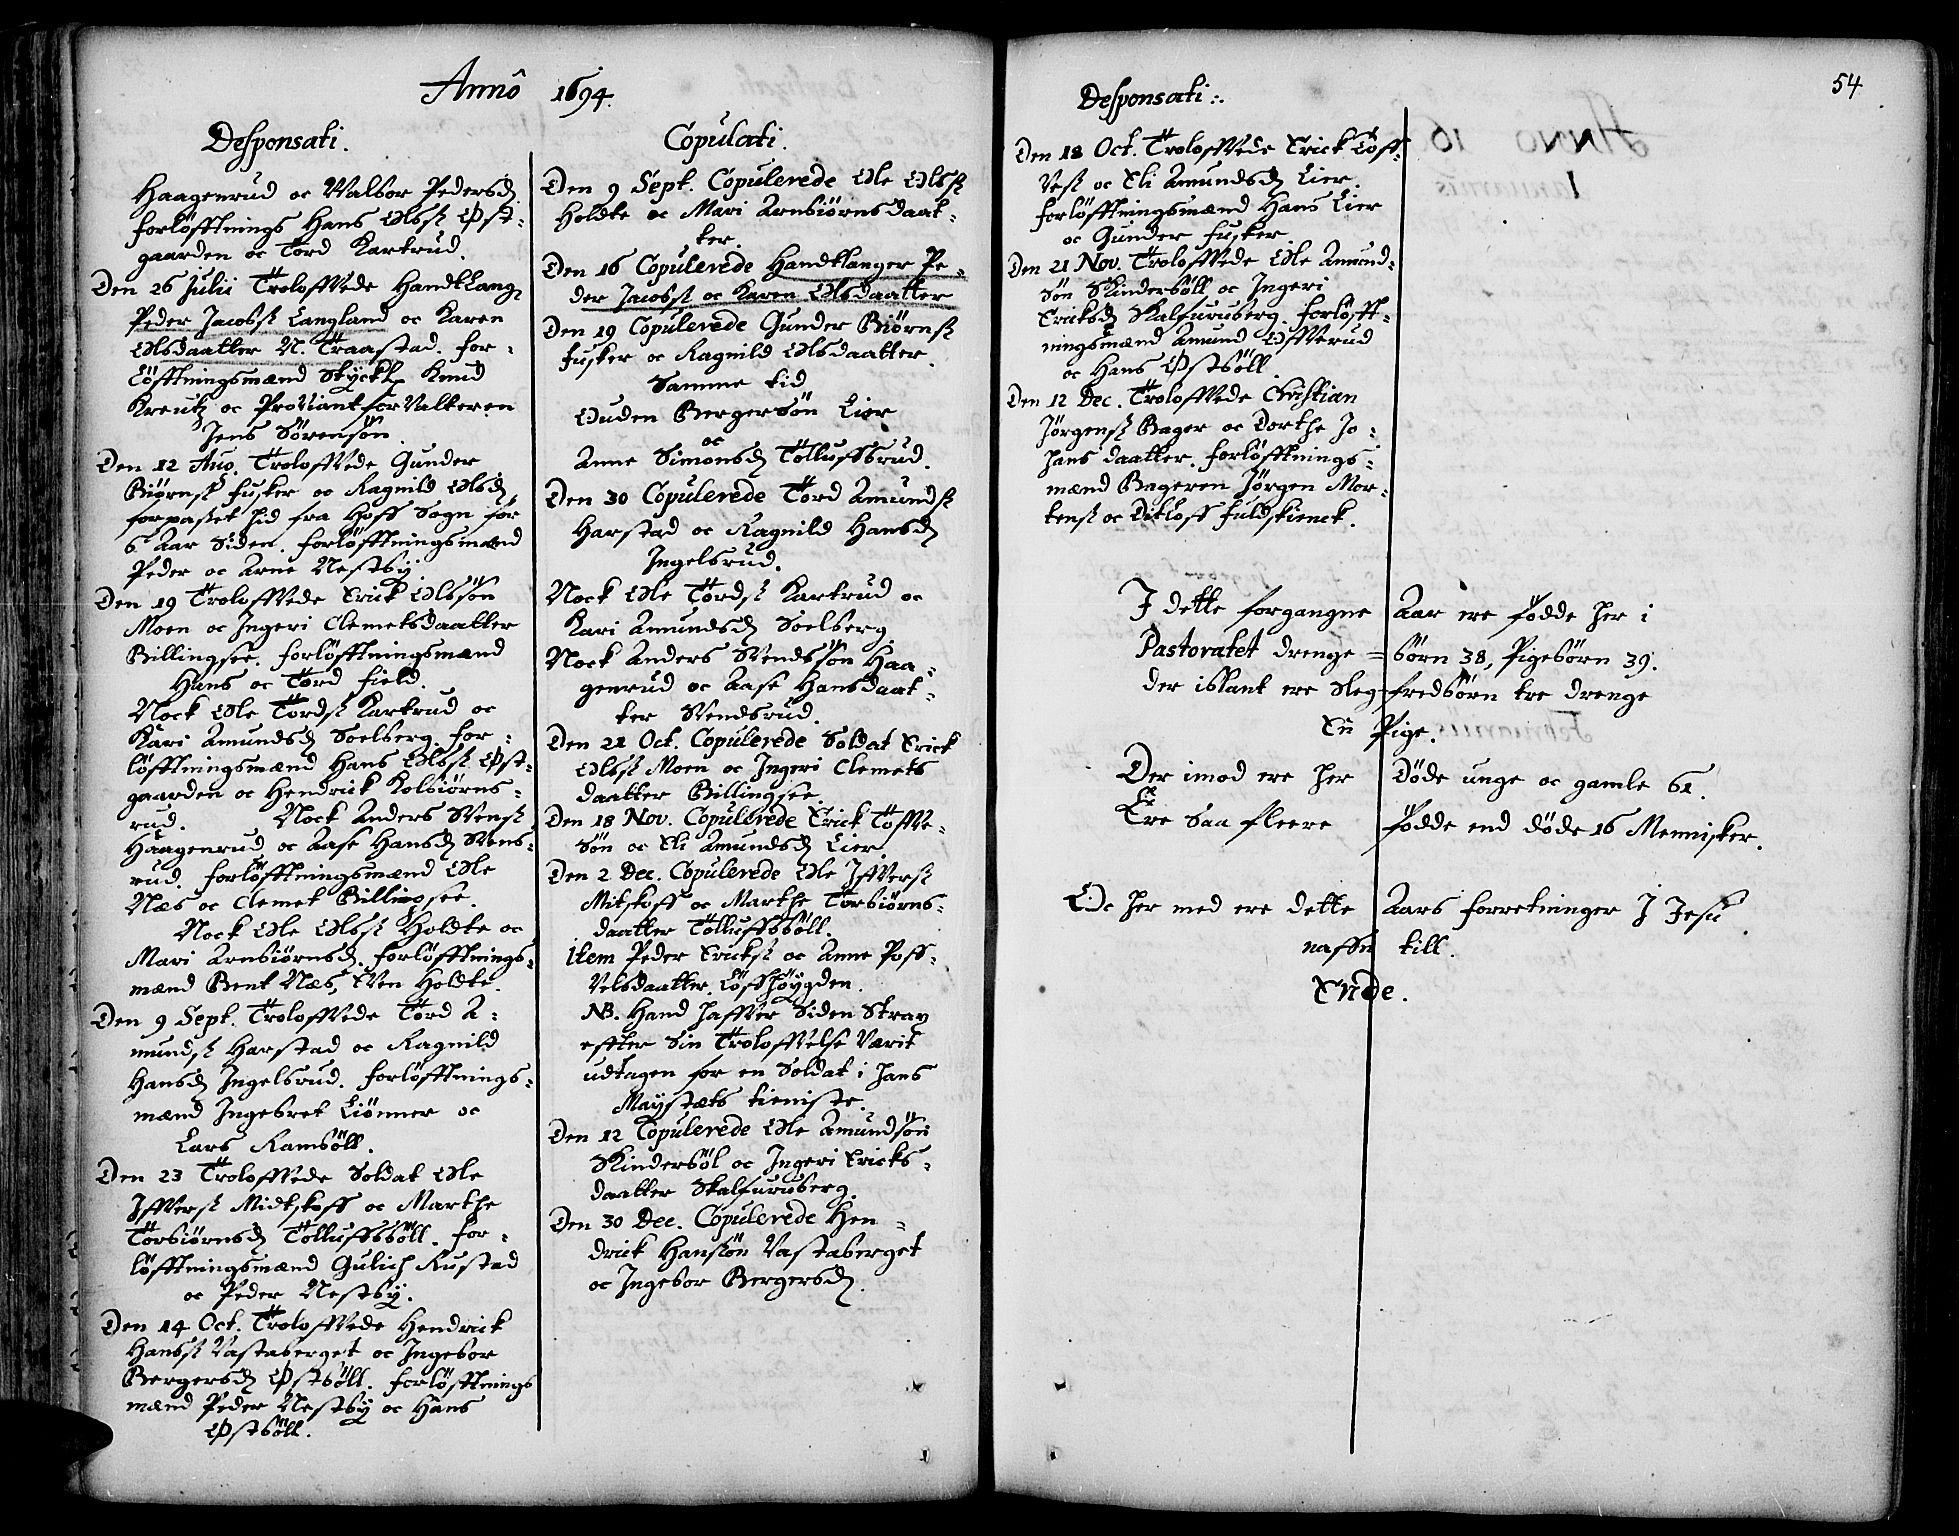 Annô 1694.
Desponsati.
Haagenrud oc Walbor Pedersd
forlöfftnings Hans Olss Øst-
gaarden oc Tord Kartrud.
Den 26 Julii Troloffvede Handtlang
Peder Jacobss Langland oc Karen
Olsdaatter N. Traastad. for-
löfftningsmænd Styckh Knud
Kreutz oc Proviantforvalteren
Jens Sörensön.
Den 12 Aug. Troloffvede Gunder
Biørnss fusker oc Ragnild Olsd
forpasset hid fra Hoff Sogn for
6 Aar Siden. forlöfftningsmænd
Peder oc Arne Nestby.
Den 19 Troloffvede Erick Olssön
Moen oc Ingeri Clemetsdaatter
Billingsee. forlöfftningsmænd
Hans oc Tord field.
Nock Ole Tordss Kartrud oc
Kari Amundsd Soelberg. for-
löfftningsmænd Hans Olss Øst-
gaarden oc Hendrick Kolbiørns-
rud. Nock Anders Svenss
Haagenrud oc Aase Hansd Svens-
rud. forlöfftningsmænd Ole
Næs oc Clemet Billingsee.
Nock Ole Olss Holdte oc
Mari Arnbiørnsd. forlöfftnings-
mænd Bent Næs, Even Holdte.
Den 9 Sept. Troloffvede Tord A-
mundss Harstad oc Ragnild
Hansd Ingelsrud. forlöfftnings-
mænd Ingebret Liønner oc
Lars Ramsöll.
Den 23 Troloffvede Soldat Ole
Iffverss Midtskoff oc Marthe
Torbiørnsd Tölluffsböll. for-
löfftningsmænd Gulich Rustad
oc Peder Nestby.
Den 14 Oct. Troloffvede Hendrick
Hanss Vastaberget oc Ingebor
Bergersd Østböll. forlöfftnings
mænd Peder Nestby oc Hans
Østböll.
Copulati.
Den 9 Sept. Copulerede Ole Olss
Holdte oc Mari Arnbiørnsdaat-
ter.
Den 16 Copulerede Handtlanger Pe-
der Jacobss oc Karen Olsdaatter
Den 19 Copulerede Gunder Biørnss
fusker oc Ragnild Olsdaatter.
Samme tid
Ouden Bergersön Lier
oc
Anne Simonsd Tölluffsrud.
Den 30 Copulerede Tord Amundss
Harstad oc Ragnild Hansd
Ingelsrud.
Nock Ole Tordss Kartrud oc
Kari Amundsd Soelberg
Nock Anders Svendsön Haa-
genrud oc Aase Hansdaat-
ter Svendsrud.
Den 21 Oct. Copulerede Soldat Erick
Olss Moen oc Ingeri Clemets
daatter Billingsee.
Den 18 Nov. Copulerede Erick Töffve-
sön oc Eli Amundsd Lier.
Den 2 Dec. Copulerede Ole Iffverss
Mitskoff oc Marthe Torbiørns-
daatter Tölluffsböll.
item Peder Ericks oc Anne Poff-
velsdaatter. Löffhöygden.
NB. Hand haffver Siden Strax
effter Sin Troloffvelse Værit
udtagen for en Soldat i hans
Mayestæts tieniste.
Den 12 Copulerede Ole Amundsön
Skindersöl oc Ingeri Ericks-
daatter Skalfuruberg.
Den 30 Dec. Copulerede Hen-
drick Hanssön Vastaberget
oc Ingebor Bergersd.
54
Desponsati:.
Den 18 Oct. Troloffvede Erick Töff-
vess oc Eli Amundsd Lier.
forlöfftningsmænd Hans Lier
oc Gunder fusker.
Den 21 Nov. Troloffvede Ole Amund-
sön Skindersöll oc Ingeri
Ericksd Skalfuruberg. forlöfft-
ningsmænd Amund Offverud
oc Hans Østböll.
Den 12 Dec. Troloffvede Christian
Jörgenss Bager oc Dorthe Jo-
hans daatter. forlöfftnings-
mænd Bageren Jörgen Mor-
tenss oc Ditloff fuldskienck.
I dette forgangne Aar ere födde her i
Pastoratet drenge= börn 38, Pigebörn 39.
der iblant ere Slegfredbörn tre drenge
En Pige.
Der imod ere her Döde unge oc gamle 61.
Ere Saa fleere födde end döde 16 Mennisker.
Oc her med ere dette Aars forretninger I Jesu
naffn till.
Ende.